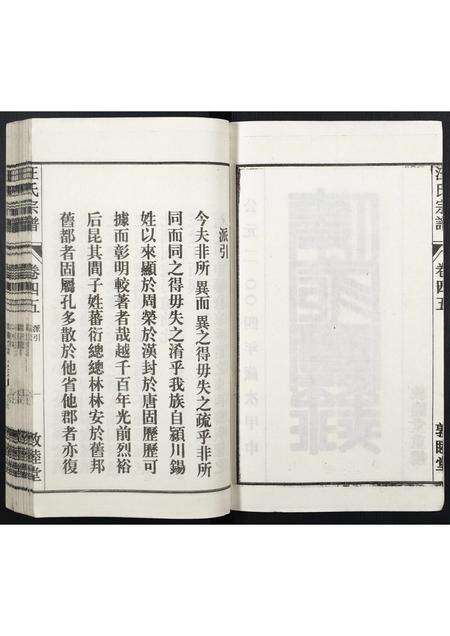 汪氏宗譜
卷四五
敦睦堂
公元二〇〇四年歲次甲申
派引
今夫非所異而異之得毋失之疏乎非所
同而同之得毋失之淆乎我族自潁川錫
姓以來顯於周榮於漢封於唐固歷歷可
據而彰明較著者哉越千百年光前烈裕
后昆其間子姓蕃衍總總林林安於舊邦
舊都者固屬孔多散於他省他郡者亦復
汪氏宗譜
卷四五
派引
一
敦睦堂